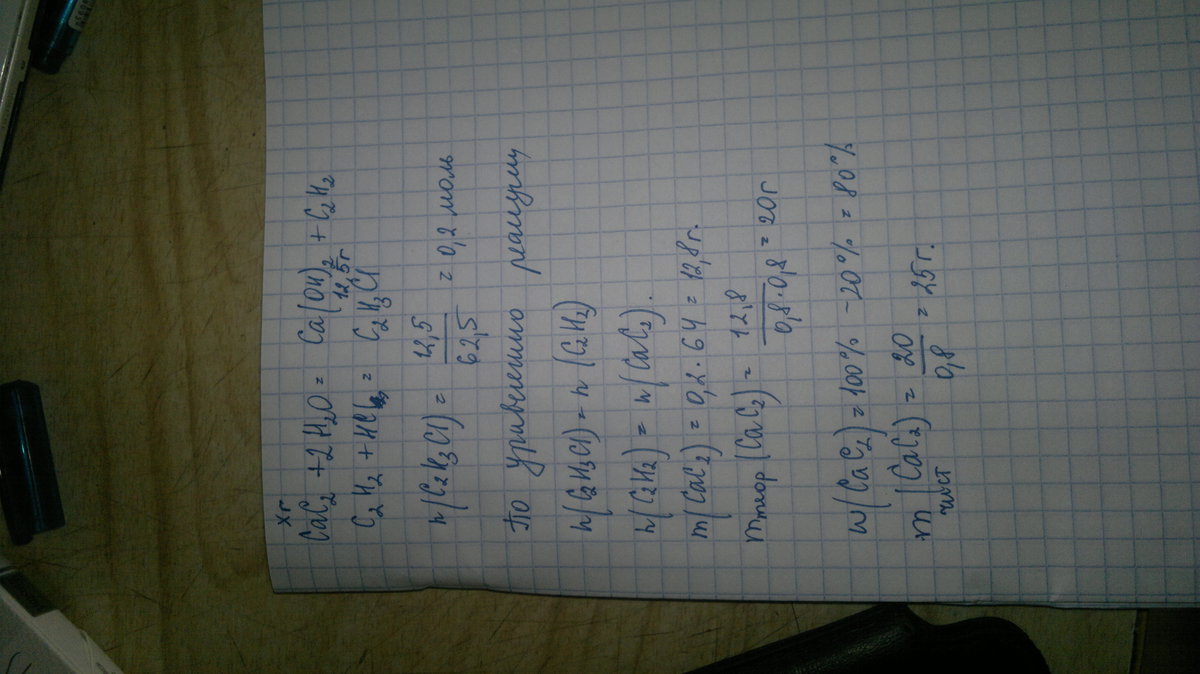 Xг
CaC₂ + 2H₂O = Ca(OH)₂ + C₂H₂
12,5г
C₂H₂ + HCl = C₂H₃Cl
n(C₂H₃Cl) = 12,5/62,5 = 0,2 моль
По уравнению реакции
n(C₂H₃Cl) = n(C₂H₂)
n(C₂H₂) = n(CaC₂).
m(CaC₂) = 0,2 · 64 = 12,8г.
mтеор(CaC₂) = 12,8/0,8·0,8 = 20г
w(CaC₂) = 100% - 20% = 80%
m чист (CaC₂) = 20/0,8 = 25г.